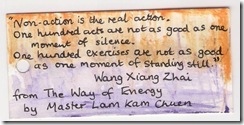 "Non-action is the real action.
One hundred acts are not as good as one
moment of silence.
One hundred exercises are not as good
as one moment of standing still."
Wang Xiang Zhai
from The Way of Energy
by Master Lam Kam Chuen